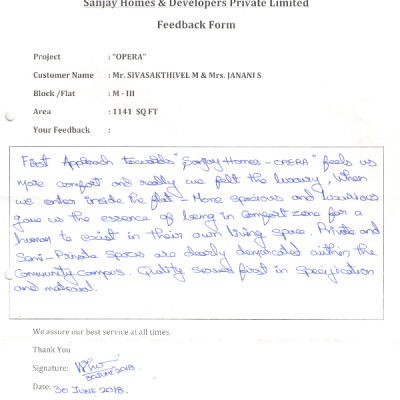 Sanjay Homes & Developers Private Limited
Feedback Form
Project : "OPERA"
Customer Name : Mr. SIVASAKTHIVEL M & Mrs. JANANI S
Block /Flat : M - III
Area : 1141 SQ FT
Your Feedback :
First Approach towards "Sanjay Homes - OPERA" feels us
more comfort and really we felt the luxury, When
we enter inside the flat - More spacious and luxurious
gave us the essence of being in comfort zone for a
human to exist in their own living space. Private and
Semi-Private spaces are clearly demarcated within the
Community campus. Quality served first in Specification
and material.
We assure our best service at all times.
Thank You
Signature:
30 JUNE 2018.
Date: 30 JUNE 2018.